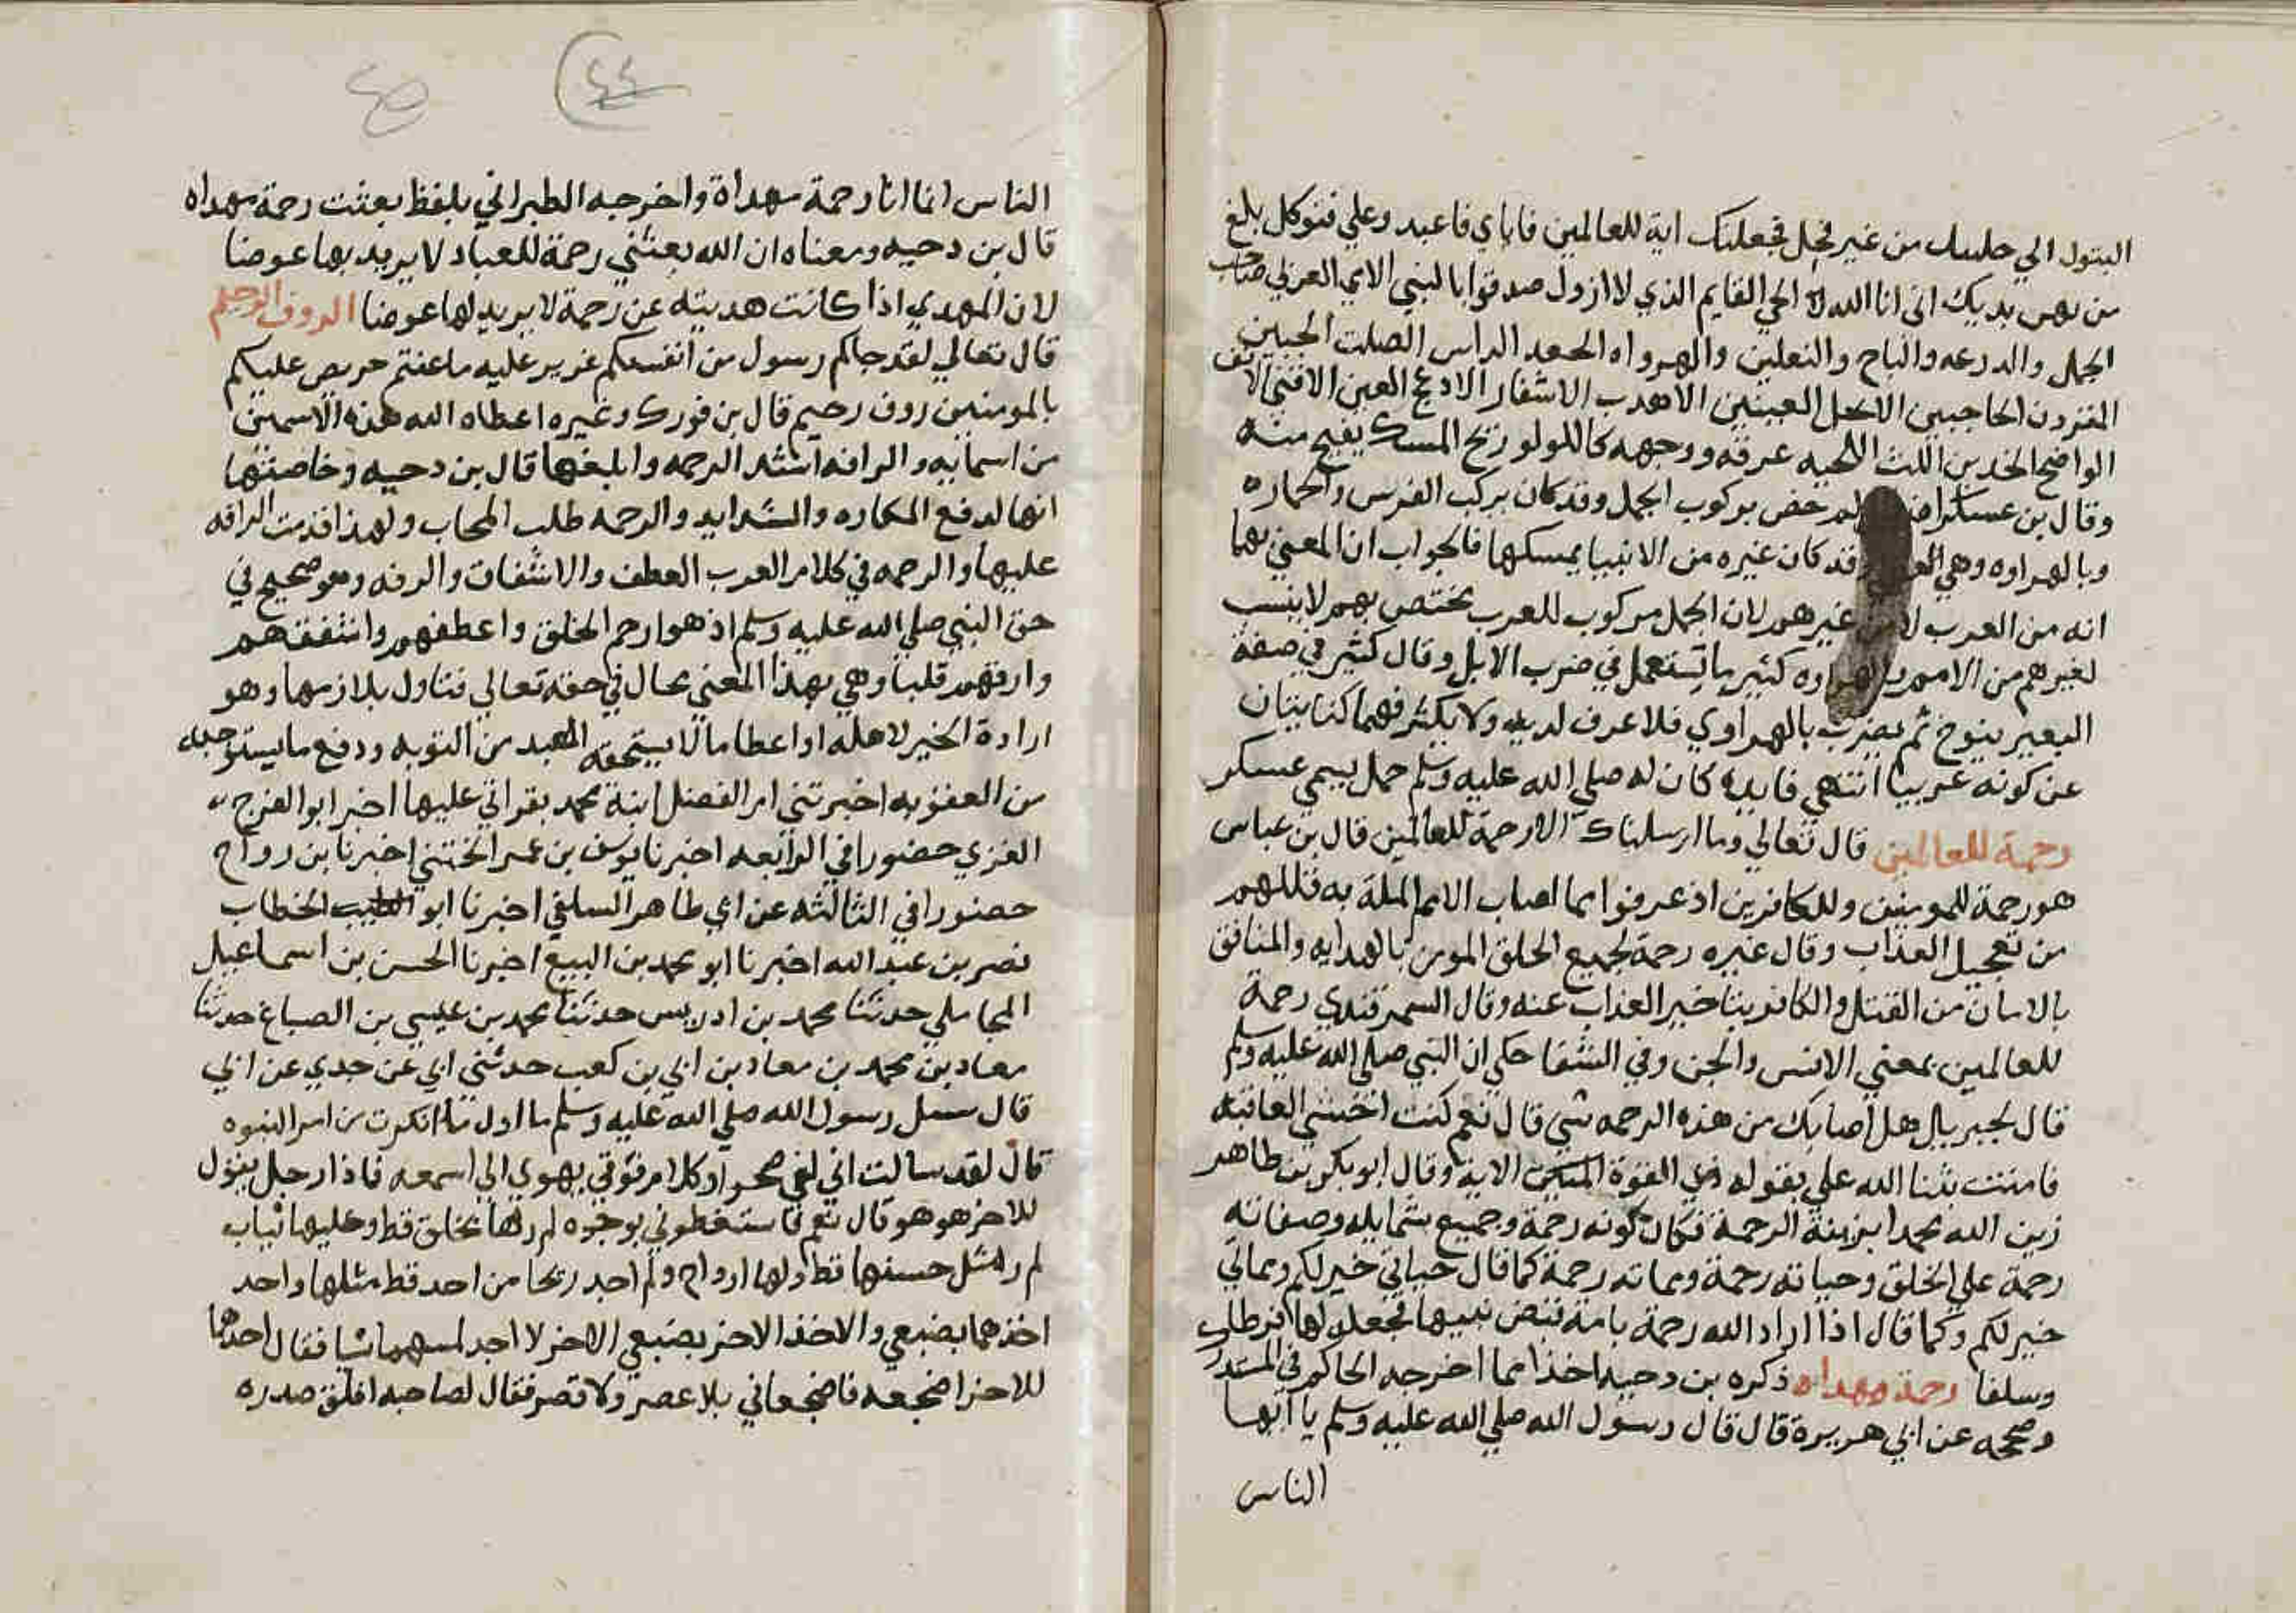 البتول الي خلقتك من غير فحل فجعلتك اية للعالمين فاياي فاعبد وعلي فتوكل بلغ
من بين يديك اني انا الله الحي القايم الذي لا ازول صدقوا بالنبي الامي العربي صاحب
الجمل والدرعه والتاج والنعلين والهراوه الجعد الراس الصلت الجبين
المقرون الحاجبين الاكحل العينين الاهدب الاشفار الادعج العين الاقني الانف
الواضح الخدين الكث اللحيه عرقه ووجهه كاللولو ريح المسك يفيح منه
وقال بن عساكر لم خص بركوب الجمل وقد كان يركب الفرس والحماره
وبالهراوه وهي قد كان غيره من الانبيا يمسكها فالجواب ان المعني بهما
انه من العرب لا من غيرهم لان الجمل مركوب للعرب يختص بهم لا ينسب
لغيرهم من الامم والهراوه كثير ما تستعمل في ضرب الابل وقال كثير في صفة
البعير ينوخ ثم يضرب بالهراوي فلا عرف لديه ولا نكير فهما كنايتان
عن كونه عربيا انتهي فايده كان له صلي الله عليه وسلم جمل يسمي عسكر
رحمة للعالمين قال تعالي وما ارسلناك الا رحمة للعالمين قال بن عباس
هو رحمة للمومنين وللكافرين اذ عرفوا مما اصاب الامم المله به قتلهم
من تعجيل العذاب وقال غيره رحمة لجميع الخلق المومن بالهدايه والمنافق
بالامان من القتل والكافر بتاخير العذاب عنه وقال السمرقندي رحمة
للعالمين بمعني الانس والجن وفي الشفا حكي ان النبي صلي الله عليه وسلم
قال لجبريل هل اصابك من هذه الرحمه شي قال نعم كنت اخشي العاقبه
فامنت بثنا الله علي بقوله ذي القوة المتين الاية وقال ابو بكر بن طاهر
زين الله محمدا بزينة الرحمة فكان كونه رحمة وجميع شمايله وصفاته
رحمة علي الخلق وحياته رحمة ومماته رحمة كما قال حياتي خير لكم ومماتي
خير لكم وكما قال اذا اراد الله رحمة بامة قبض نبيها فجعله لها فرطا
وسلفا رحمة مهداه ذكره بن دحيه اخذا مما اخرجه الحاكم في المستدرك
وصححه عن ابي هريرة قال قال رسول الله صلي الله عليه وسلم يا ايها
الناس
٤٤
٤٥
الناس انما انا رحمة مهداة واخرجه الطبراني بلفظ بعثت رحمة مهداه
قال بن دحيه ومعناه ان الله بعثني رحمة للعباد لا يريد بها عوضا
لان المهدي اذا كانت هديته عن رحمة لا يريد لها عوضا الروف الرحيم
قال تعالي لقد جاكم رسول من انفسكم عزيز عليه ما عنتم حريص عليكم
بالمومنين روف رحيم قال بن فورك وغيره اعطاه الله هذه الاسمين
من اسمايه والرافه اشد الرحمه وابلغها قال بن دحيه وخاصتها
انها لدفع المكاره والشدايد والرحمه طلب المحاب ولهذا قدمت الرافه
عليها والرحمه في كلام العرب العطف والاشفاق والرفه وهو صحيح في
حق النبي صلي الله عليه وسلم اذ هو ارحم الخلق واعطفهم واشفقهم
وارقهم قلبا وهي بهذا المعني محال في حقه تعالي فتاول بلازمها وهو
ارادة الخير لاهله او اعطا ما لا يستحقه العبد من التوبه ودفع ما يستوجبه
من العقوبه اخبرتني ام الفضل ابنة محمد بقراتي عليها اخبر ابو الفرج
الغزي حضورا في الرابعه اخبرنا يوسف بن عمر الختني اخبرنا بن رواج
حضورا في الثالثه عن ابي طاهر السلفي اخبرنا ابو الخطاب
نصر بن عبد الله اخبرنا ابو محمد بن البيع اخبرنا الحسن بن اسماعيل
المحاملي حدثنا محمد بن ادريس حدثنا محمد بن عيسي بن الصباغ حدثنا
معاد بن محمد بن معاد بن ابي بن كعب حدثني ابي عن جدي عن ابي
قال سيل رسول الله صلي الله عليه وسلم ما اول ما انكرت من امر النبوه
قال لقد سالت اني لفي صحرا وكلام فوقي يهوي الي اسمعه فاذا رجل يقول
للاخر هو هو قال نعم فاستغطوني بوجوه لم ارها بخلق قط وعليها ثياب
لم ار مثل حسنها قط ولها ارواح ولم اجد ريحا من احد قط مثلها واحد
احدهما بضبعي والاخذ الاخر بضبعي الاخر لا اجد لمسهما شيا فقال احدهما
للاخر اضجعه فاضجعاني بلا عصر ولا قصر فقال لصاحبه افلق صدره